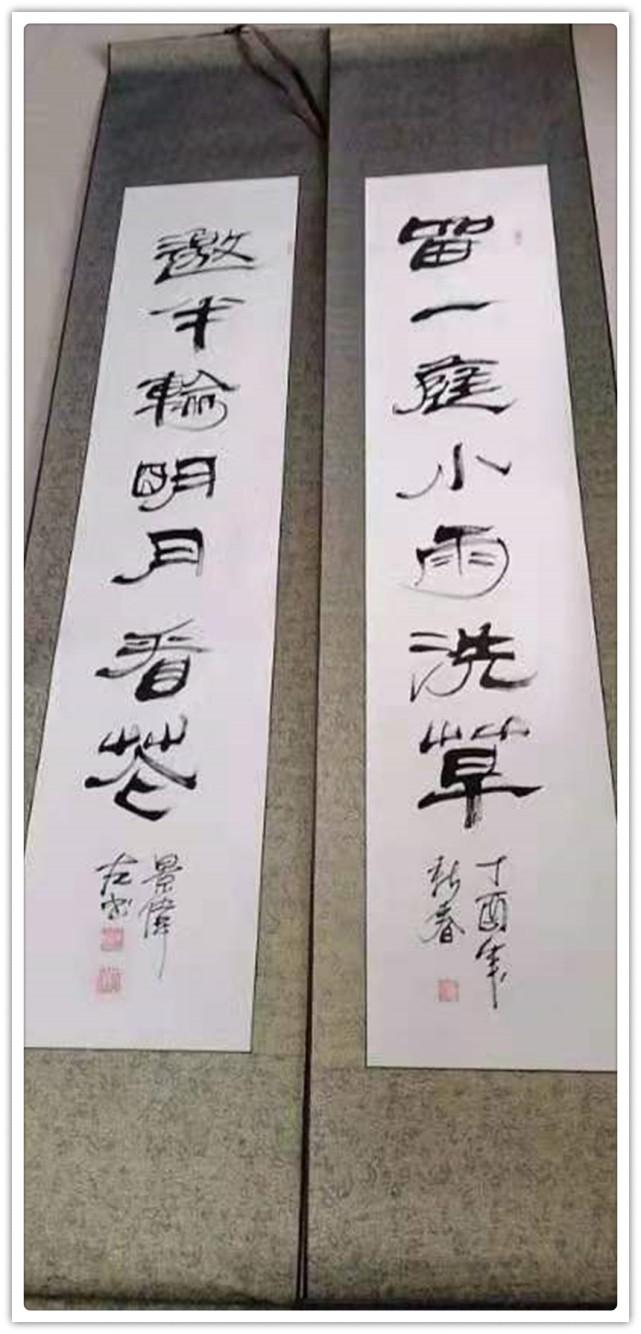 留一庭小雨洗草
丁酉年
新春
邀半輪明月看花
景偉
左书